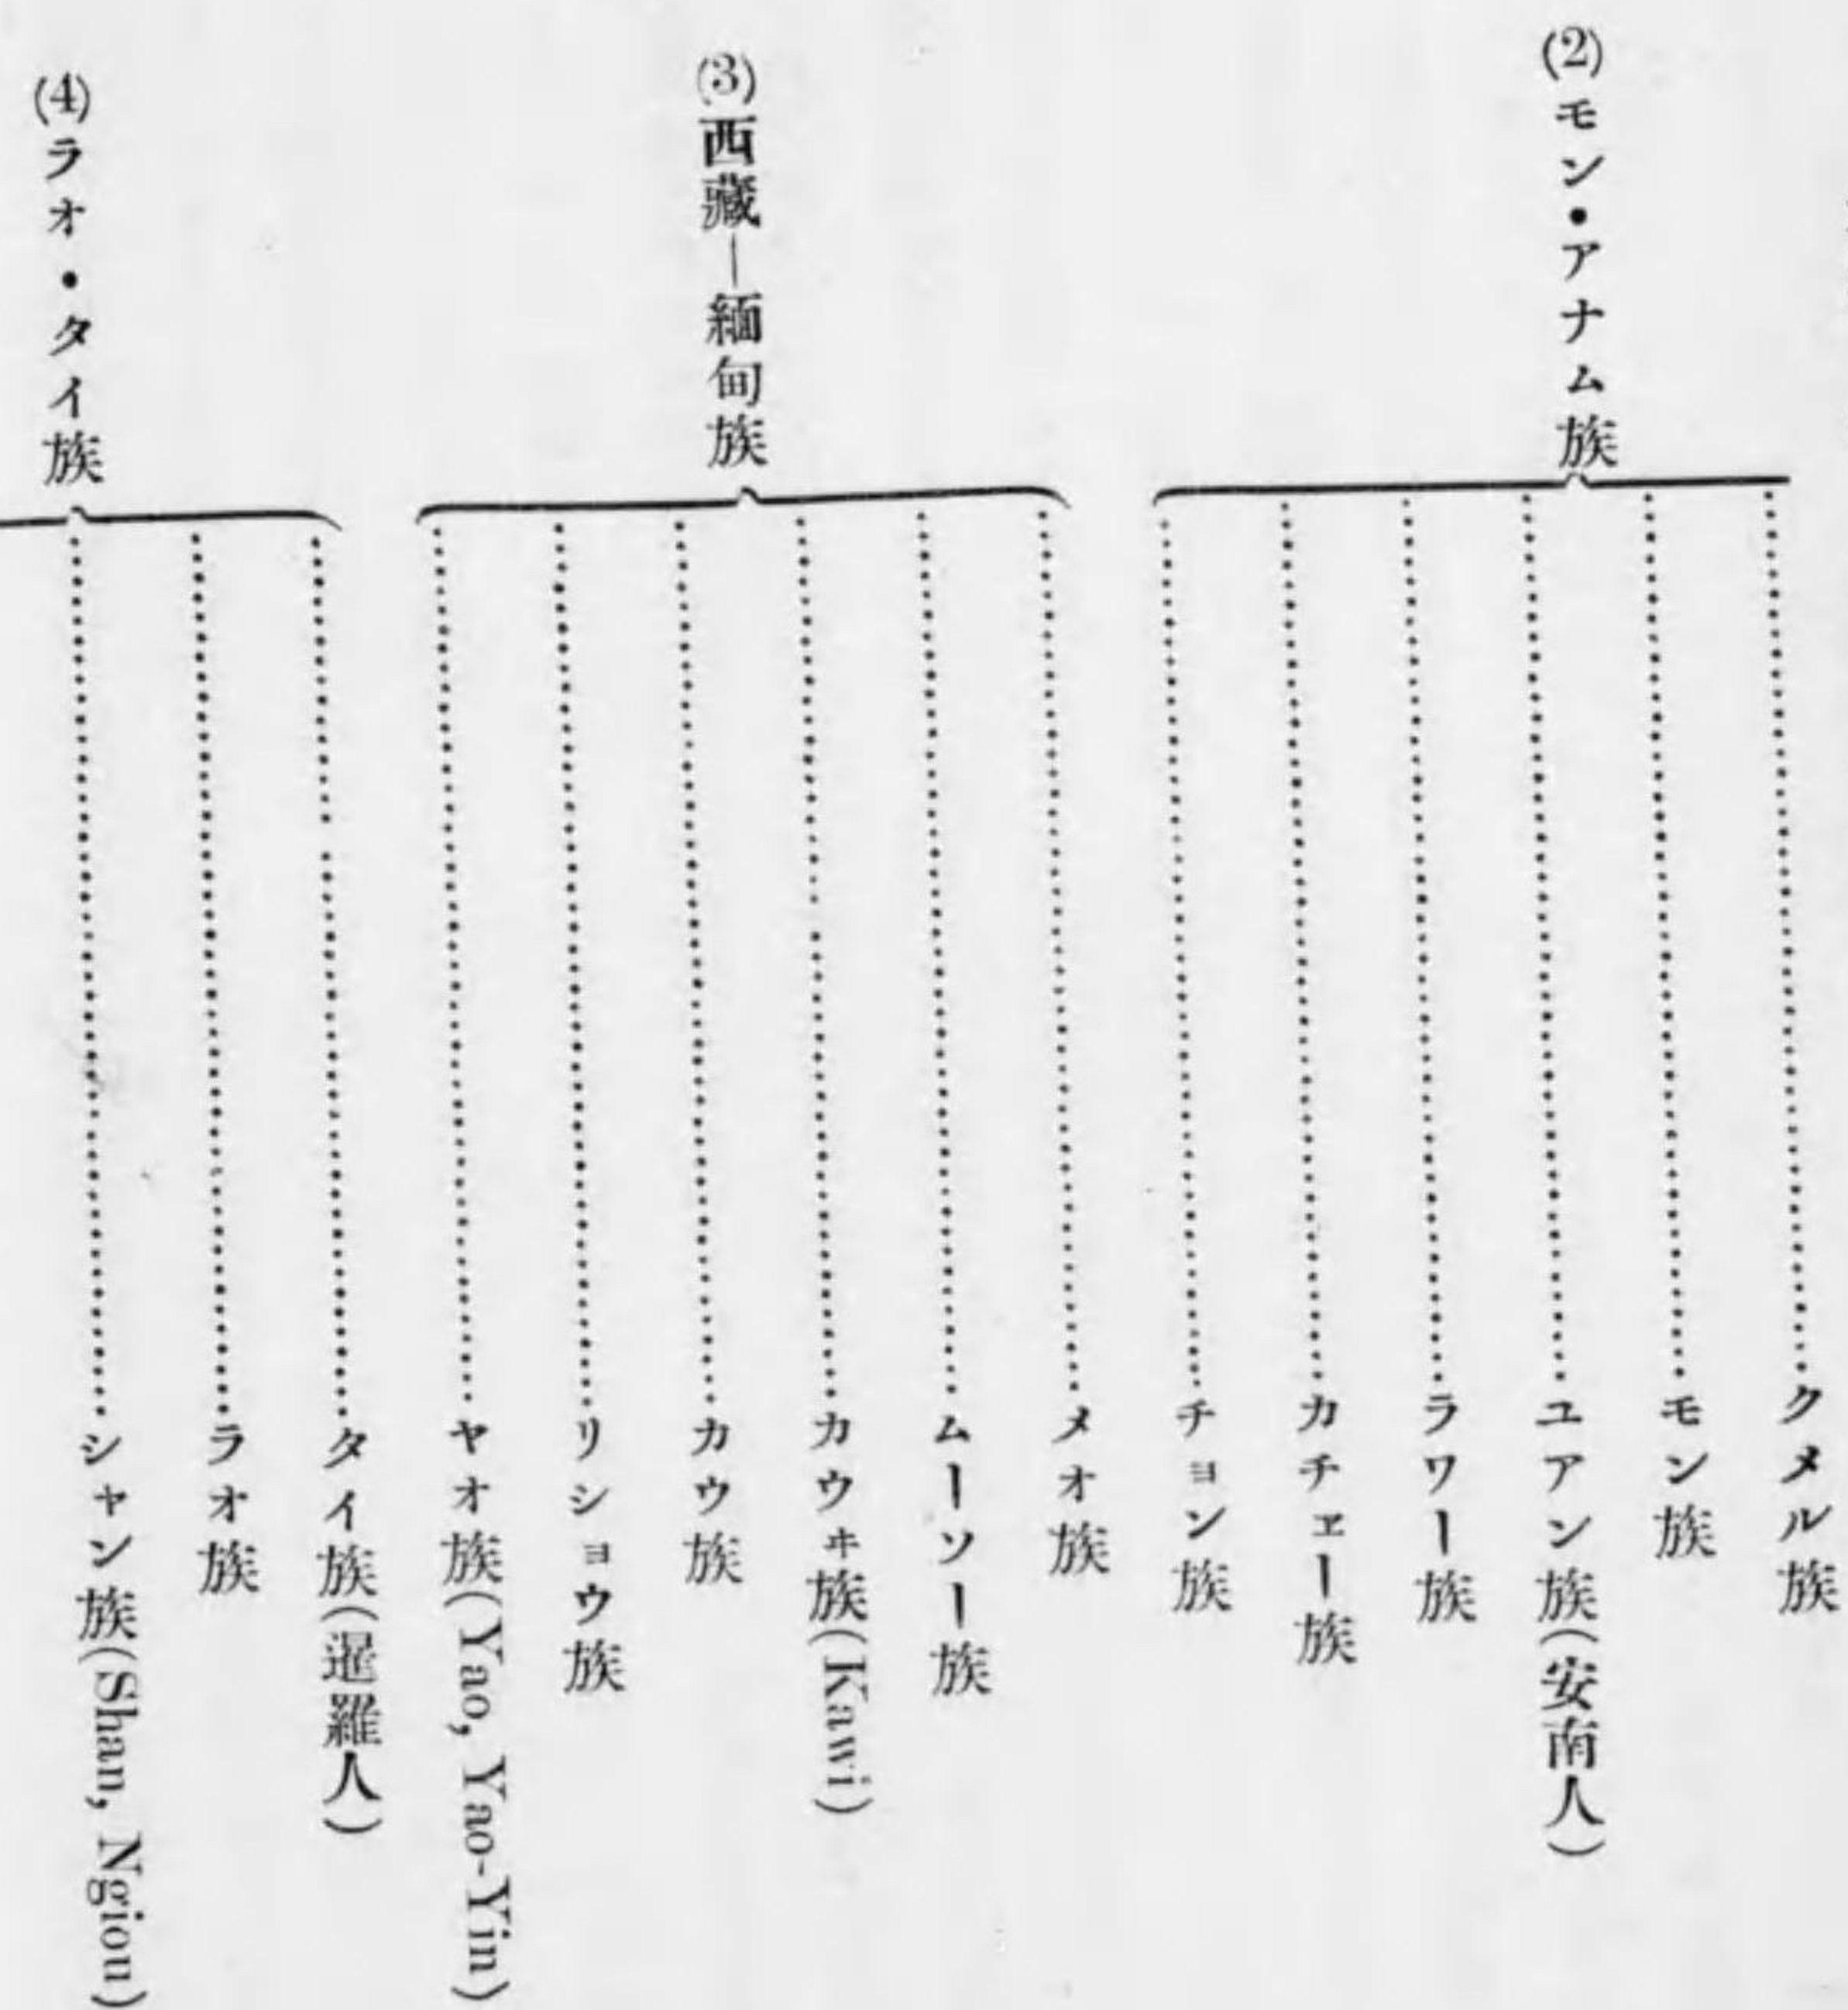 (2)モン・アナム族
クメル族
モン族
ユアン族(安南人)
ラワー族
カチェー族
チョン族
(3)西藏―緬甸族
メオ族
ムーソー族
カウヰ族(Kawi)
カウ族
リショウ族
ヤオ族(Yao, Yao-Yin)
(4)ラオ・タイ族
タイ族(暹羅人)
ラオ族
シャン族(Shan, Ngiou)